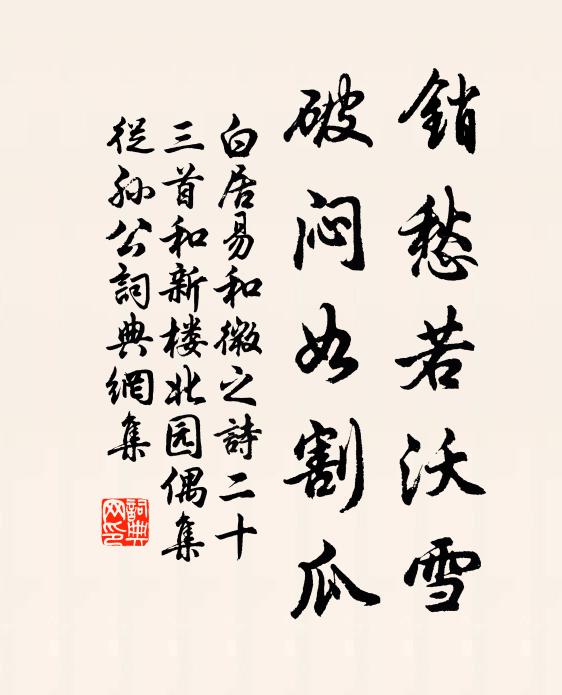 銷愁若沃雪
破闷如割瓜
白居易和微之詩二十
三首和新楼北园偶集
從孙公詞典網集
詞典
网